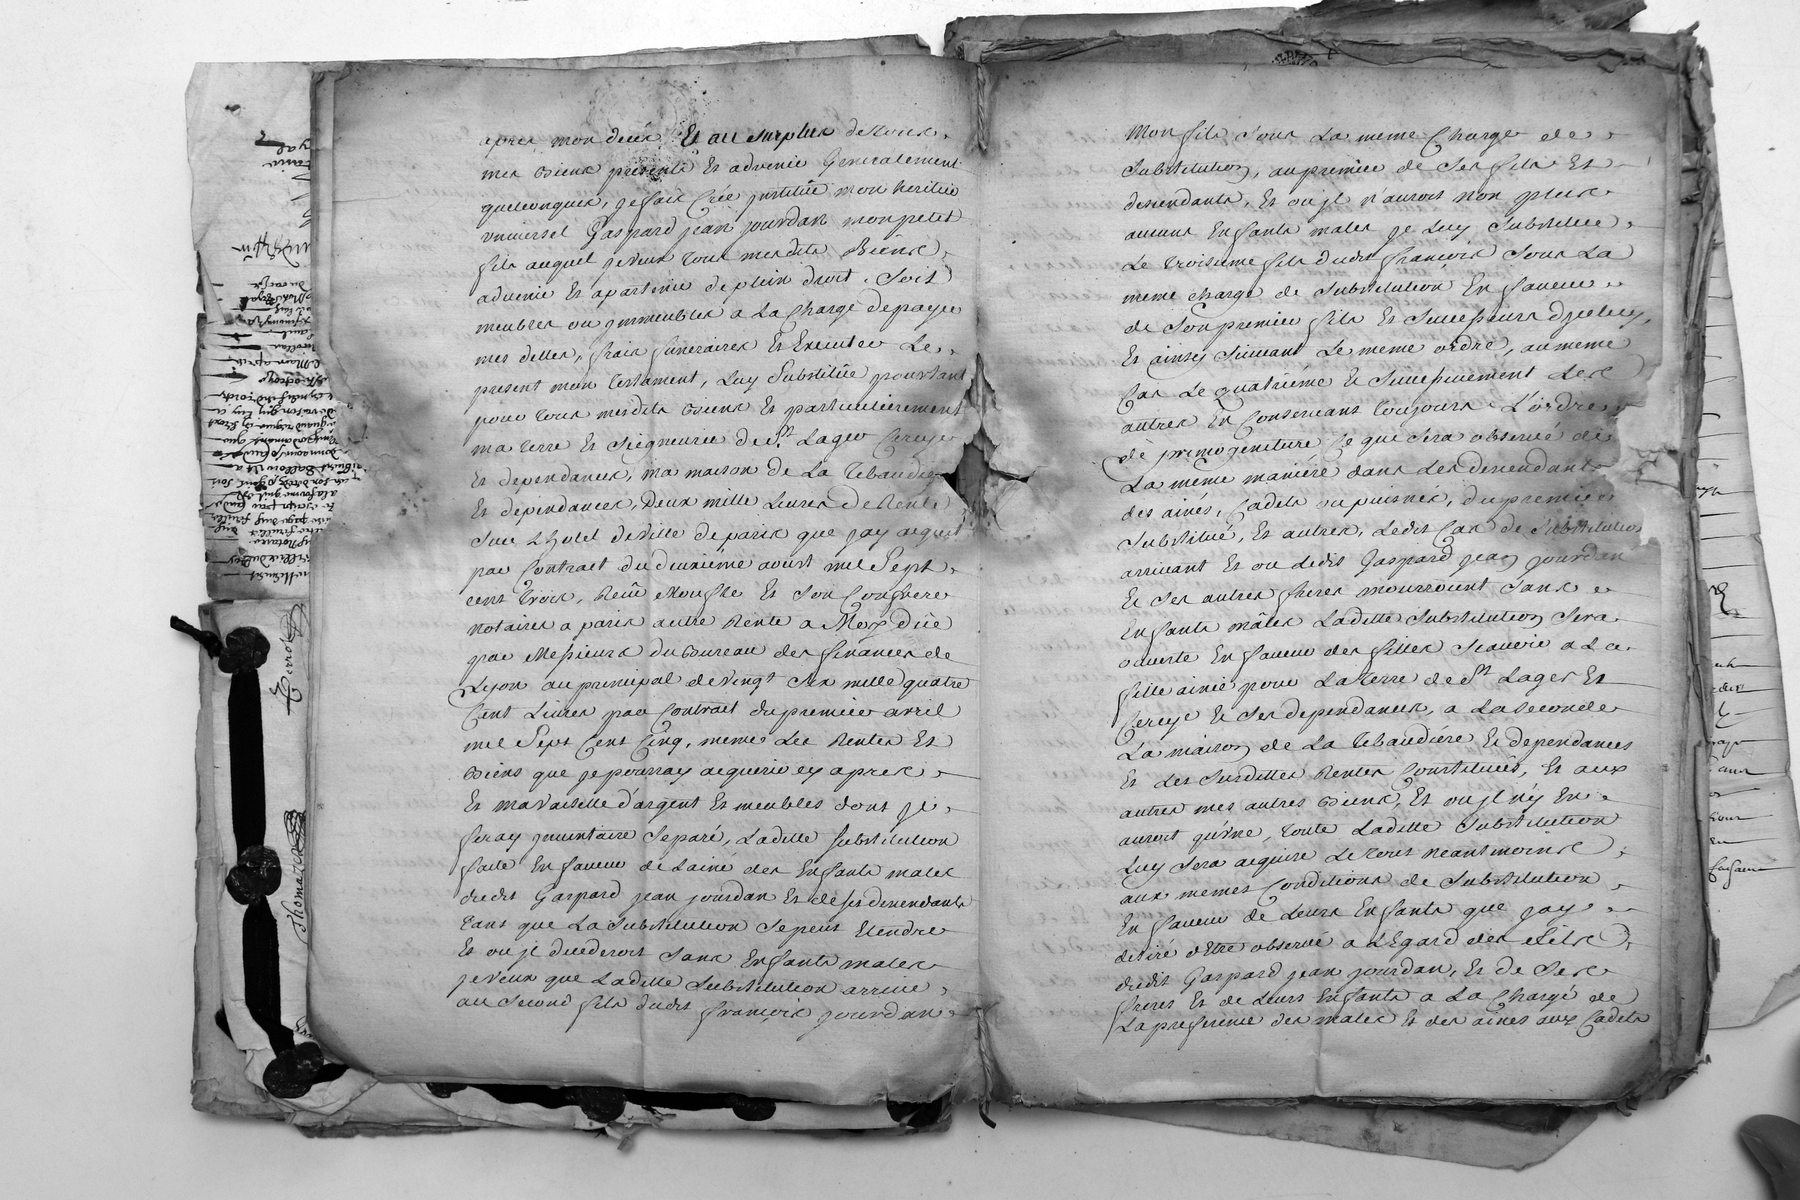 apres mon decés Et au surplus de tous
mes biens presents Et advenir Generalement
quelconques, je fais Crée jnstitüe mon heritier
vniversel Gaspard jean jourdan mon petit
fils auquel je veux tous mesdits Biens
advenir Et apartenir de plein droit, soit
meubles ou jmmeubles a La Charge de payer
mes dettes, frais funeraires Et Executer Le
present mon testament, Luy Substitüe pourtant
pour tous mesdits biens Et particulierement
ma terre Et Seigneurie de St. Lager Cercye
Et dependances, ma maison de La Tebaudiere
Et dependances, Deux mille Livres de Rente
Sur L'hotel de Ville de paris que jay acquis
par Contract du deuxiéme aoust mil Sept
cent trois, Reçu Mousle Et Son Confrere
notaires a paris autre Rente a Moy düe
par Messieurs du bureau des finances de
Lyon au principal de vingt Six mille quatre
Cent Livres par Contract du premier avril
mil Sept Cent Cinq, meme Les Rentes Et
biens que je pourray acquerir cy apres
Et ma vaiselle d'argent Et meubles dont je
feray jnventaire Separé, Laditte substitution
faite En faveur de L'ainé des Enfants males
dudit Gaspard jean jourdan Et de ses descendants
tant que La Substitution Se peut Etendre
Et ou jl decederoit Sans Enfants males
je veux que Laditte Substitution arrive
au Second fils dudit françois jourdan
Mon fils Sous La meme Charge de
Substitution, au premier de Ses fils Et
descendants, Et ou jl n'auroit Non plus
aucuns Enfants males je Luy Substitue
Le troisieme fils dudit françois Sous La
meme charge de Substitution En faveur
de Son premier fils Et Successeurs djceluy,
Et ainsy Suivant Le meme ordre, au meme
Cas Le quatriéme Et Successivement Les
autres En Conservant toujours L'ordre
de primogeniture Ce que Sera observé de
La même maniére dans Les descendants
des ainés, Cadets ou puisnés, du premier
Substitué, Et autres, Ledit Cas de Substitution
arrivant Et ou Ledit Gaspard jean jourdan
Et Ses autres freres mourroient Sans
Enfants mâles Laditte Substitution Sera
ouverte En faveur des filles Scavoir a La
fille ainée pour La terre de St. Lager Et
Cercye Et Ses dependances, a La Seconde
La maison de La Tebaudiére Et dependances
Et Les Susdittes Rentes Constituées, Et aux
autres mes autres biens, Et ou jl n'y En
auroit qu'vne, toute Laditte Substitution
Luy Sera acquise Le tout neantmoins
aux memes Conditions de Substitution
En faveur de Leurs Enfants que jay
desiré d'Etre observé a L'Egard des fils
dudit Gaspard jean jourdan, Et de Ses
freres Et de Leurs Enfants a La Chargé de
La preference des males Et des ainés aux Cadets